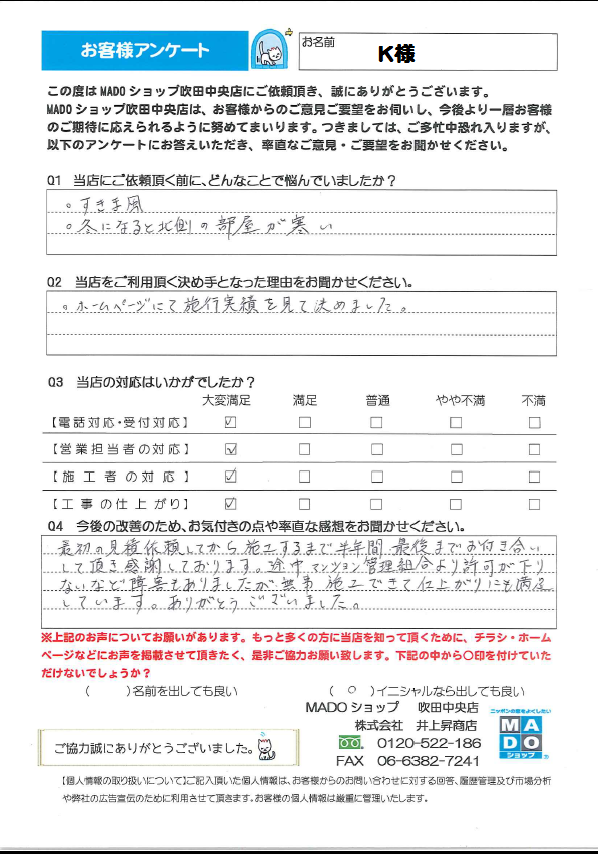 お客様アンケート
お名前
K様
この度は MADO ショップ吹田中央店にご依頼頂き、誠にありがとうございます。
MADO ショップ吹田中央店は、お客様からのご意見ご要望をお伺いし、今後より一層お客様
のご期待に応えられるように努めてまいります。つきましては、ご多忙中恐れ入りますが、
以下のアンケートにお答えいただき、率直なご意見・ご要望をお聞かせください。
Q1 当店にご依頼頂く前に、どんなことで悩んでいましたか？
。すきま風
。冬になると北側の部屋が寒い
Q2 当店をご利用頂く決め手となった理由をお聞かせください。
。ホームページにて施行実績を見て決めました。
Q3 当店の対応はいかがでしたか？
大変満足 満足 普通 やや不満 不満
【電話対応・受付対応】 ☑ □ □ □ □
【営業担当者の対応】 ☑ □ □ □ □
【施工者の対応】 ☑ □ □ □ □
【工事の仕上がり】 ☑ □ □ □ □
Q4 今後の改善のため、お気付きの点や率直な感想をお聞かせください。
最初の見積依頼してから施工するまで半年間 最後までお付き合い
して頂き感謝しております。途中マンション管理組合より許可が下り
ないなど障害もありましたが無事施工できて仕上がりにも満足
しています。ありがとうございました。
※上記のお声についてお願いがあります。もっと多くの方に当店を知って頂くために、チラシ・ホーム
ページなどにお声を掲載させて頂きたく、是非ご協力お願い致します。下記の中から〇印を付けていた
だけないでしょうか？
（　　）名前を出しても良い （ ○ ）イニシャルなら出しても良い
MADO ショップ 吹田中央店
株式会社 井上昇商店
0120-522-186
FAX 06-6382-7241
ニッポンの窓をよくしたい
MADO
ショップ
ご協力誠にありがとうございました。
【個人情報の取り扱いについて】ご記入頂いた個人情報は、お客様からのお問い合わせに対する回答、履歴管理及び市場分析
や弊社の広告宣伝のために利用させて頂きます。お客様の個人情報は厳重に管理いたします。